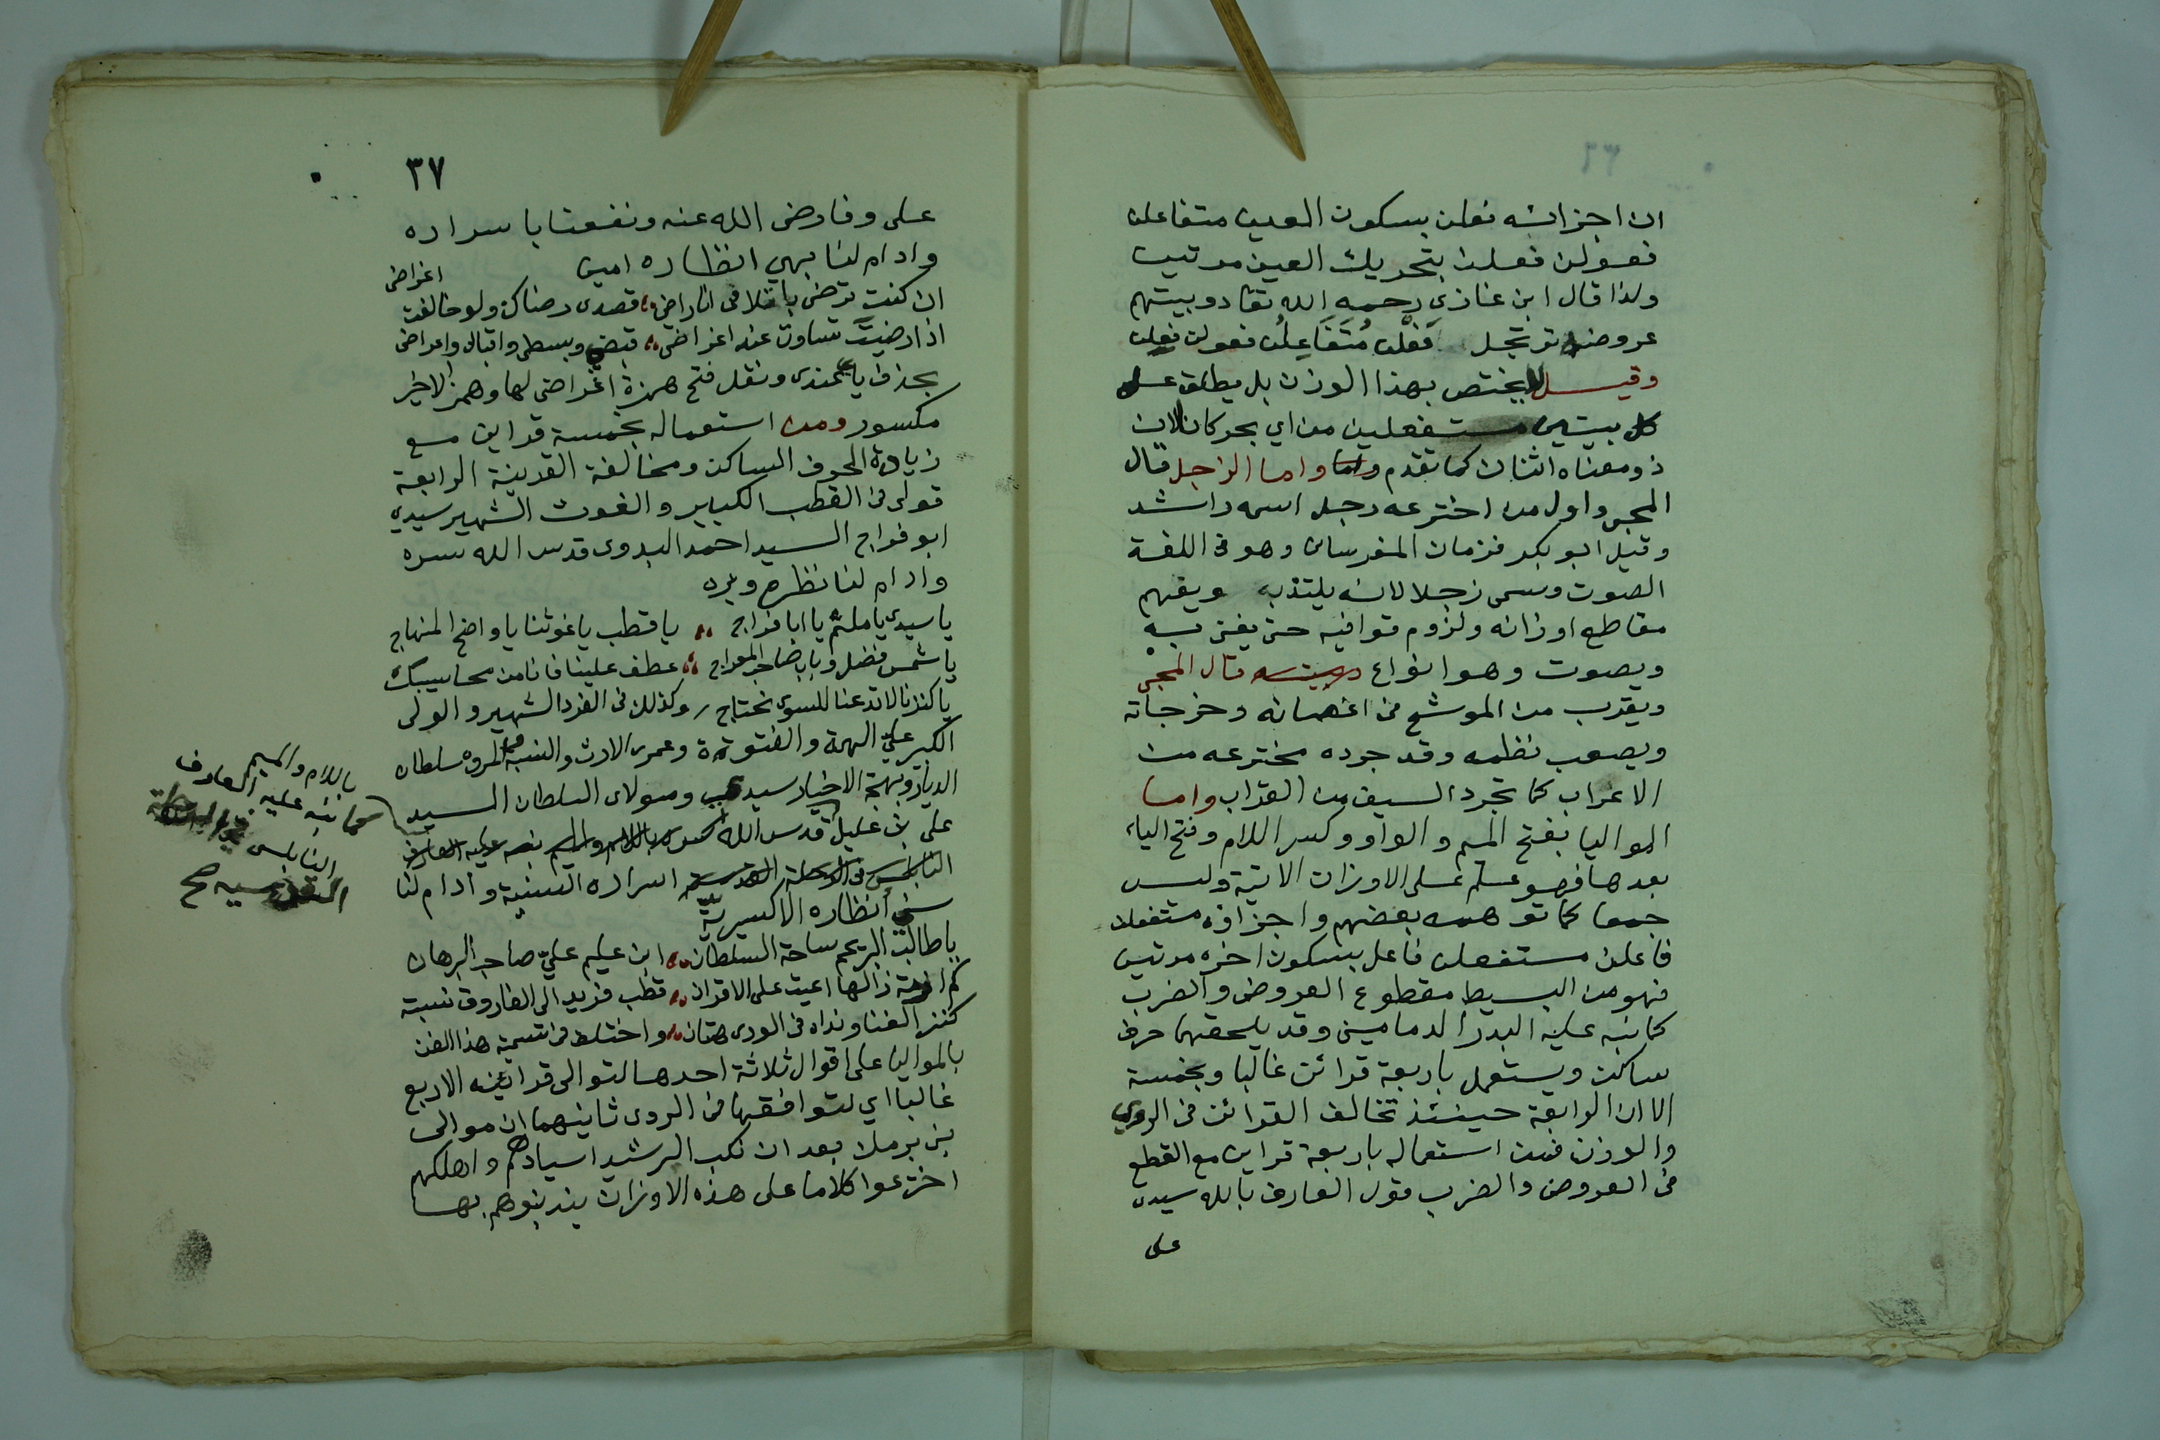 ان اجزائه فعلن بسكون العين متفاعلن
فعولن فعلن بتحريك العين مرتين
ولذا قال ابن غازي رحمه الله تعا دوبيتهم
عروضه ترتجل فَعْلُن مُتَفَاعِلُن فعولن فعلن
وقيل لا يختص بهذا الوزن بل يطلق على
كل بيتين من اي بحر كان لان
ذو معناه اثنان كما تقدم واما الزجل قال
المحبي واول من اختر عه رجل اسمه راشد
وقيل ابو بكر قزمان المغرساني وهو في اللغة
الصوت وسمى زجلا لانه يلتذ به ويفهم
مقاطع اوزانه ولزوم قوافيه حتى يغنى به
ويصوت وهو انواع قال المحبي
ويقرب من الموشح في اغصانه وخرجاته
ويصعب نظمه وقد جرده مخترعه من
الاعراب كما تجرد السيف من القراب واما
المواليا بفتح الميم والواو وكسر اللام وفتح الياء
بعدها فهو علم على الاوزان الاتية وليس
جمعا كما توهمه بعضهم واجزاؤه مستفعلن
فاعلن مستفعلن فاعل بسكون اخره مرتين
فهو من البسيط مقطوع العروض والضرب
كما نبه عليه البدر الدماميني وقد يلحقهما حرف
ساكن ويستعمل باربعة قرائن غالبا وبخمسة
الا ان الرابعة حينئذ تخالف القرائن في الروي
والوزن فمن استعماله باربعة قراين مع القطع
في العروض والضرب قول العارف بالله سيدى
على
٣٧
على وفا رضى الله عنه ونفعنا باسراره
وادام لنا بهي انظاره امين
ان كنت ترضى باتلافى انا راضى قصدى رضاك ولو خالفت اغراضى
اذا رضيت تساوت عند اغراضى قبضى وبسطى واقبال واعراضى
بحذف ياء عندى ونقل فتح همزة اغراضى لها وهمز الاخير
مكسور ومن استعماله بخمسة قراين مع
زيادة الحرف الساكن ومخالفة القرينة الرابعة
قولى فى القطب الكبير والغوث الشهير سيدي
ابو فراج السيد احمد البدوى قدس الله سره
وادام لنا نظره وبره
يا سيدى يا ملثم يا ابا فراج يا قطب يا غوثنا يا واضح المنهاج
يا شمس فضل ويا باب صاحب المعراج عطف علينا فانا من محاسيبك
يا كنزنا لا تدعنا للسوى نحتاج وكذلك فى الفرد الشهير والولى
الكبير عليّ الهمة والفتوة وعمرى الارث والنسب المروه سلطان
الديار وبهجة الاخيار سيدي ومولاى السلطان السيد
على بن عليل قدس الله
اسراره السنية وادام لنا
سني أنظاره الاكسيريّة
يا طالب البر يمم ساحة السلطان ابن عليم عليّ صاحب البرهان
كم ازمة زالها اعيت على الاقران قطب فريد الى الفاروق نسبة
كنز الغنا ونداه فى الورى هتان واختلف فى تسمية هذا الفن
بالمواليا على اقوال ثلاثة احدها لتوالى قراينه الاربع
غالبا اي لتوافقها فى الروى ثانيهما ان موالى
بنى برمك بعد ان نكب الرشيد اسيادهم واهلكهم
اخترعوا كلاما على هذه الاوزان يندبونهم بها
باللام والميم
كما نبه عليه العارف
النابلسى فى الرحلة
القدسيه صح